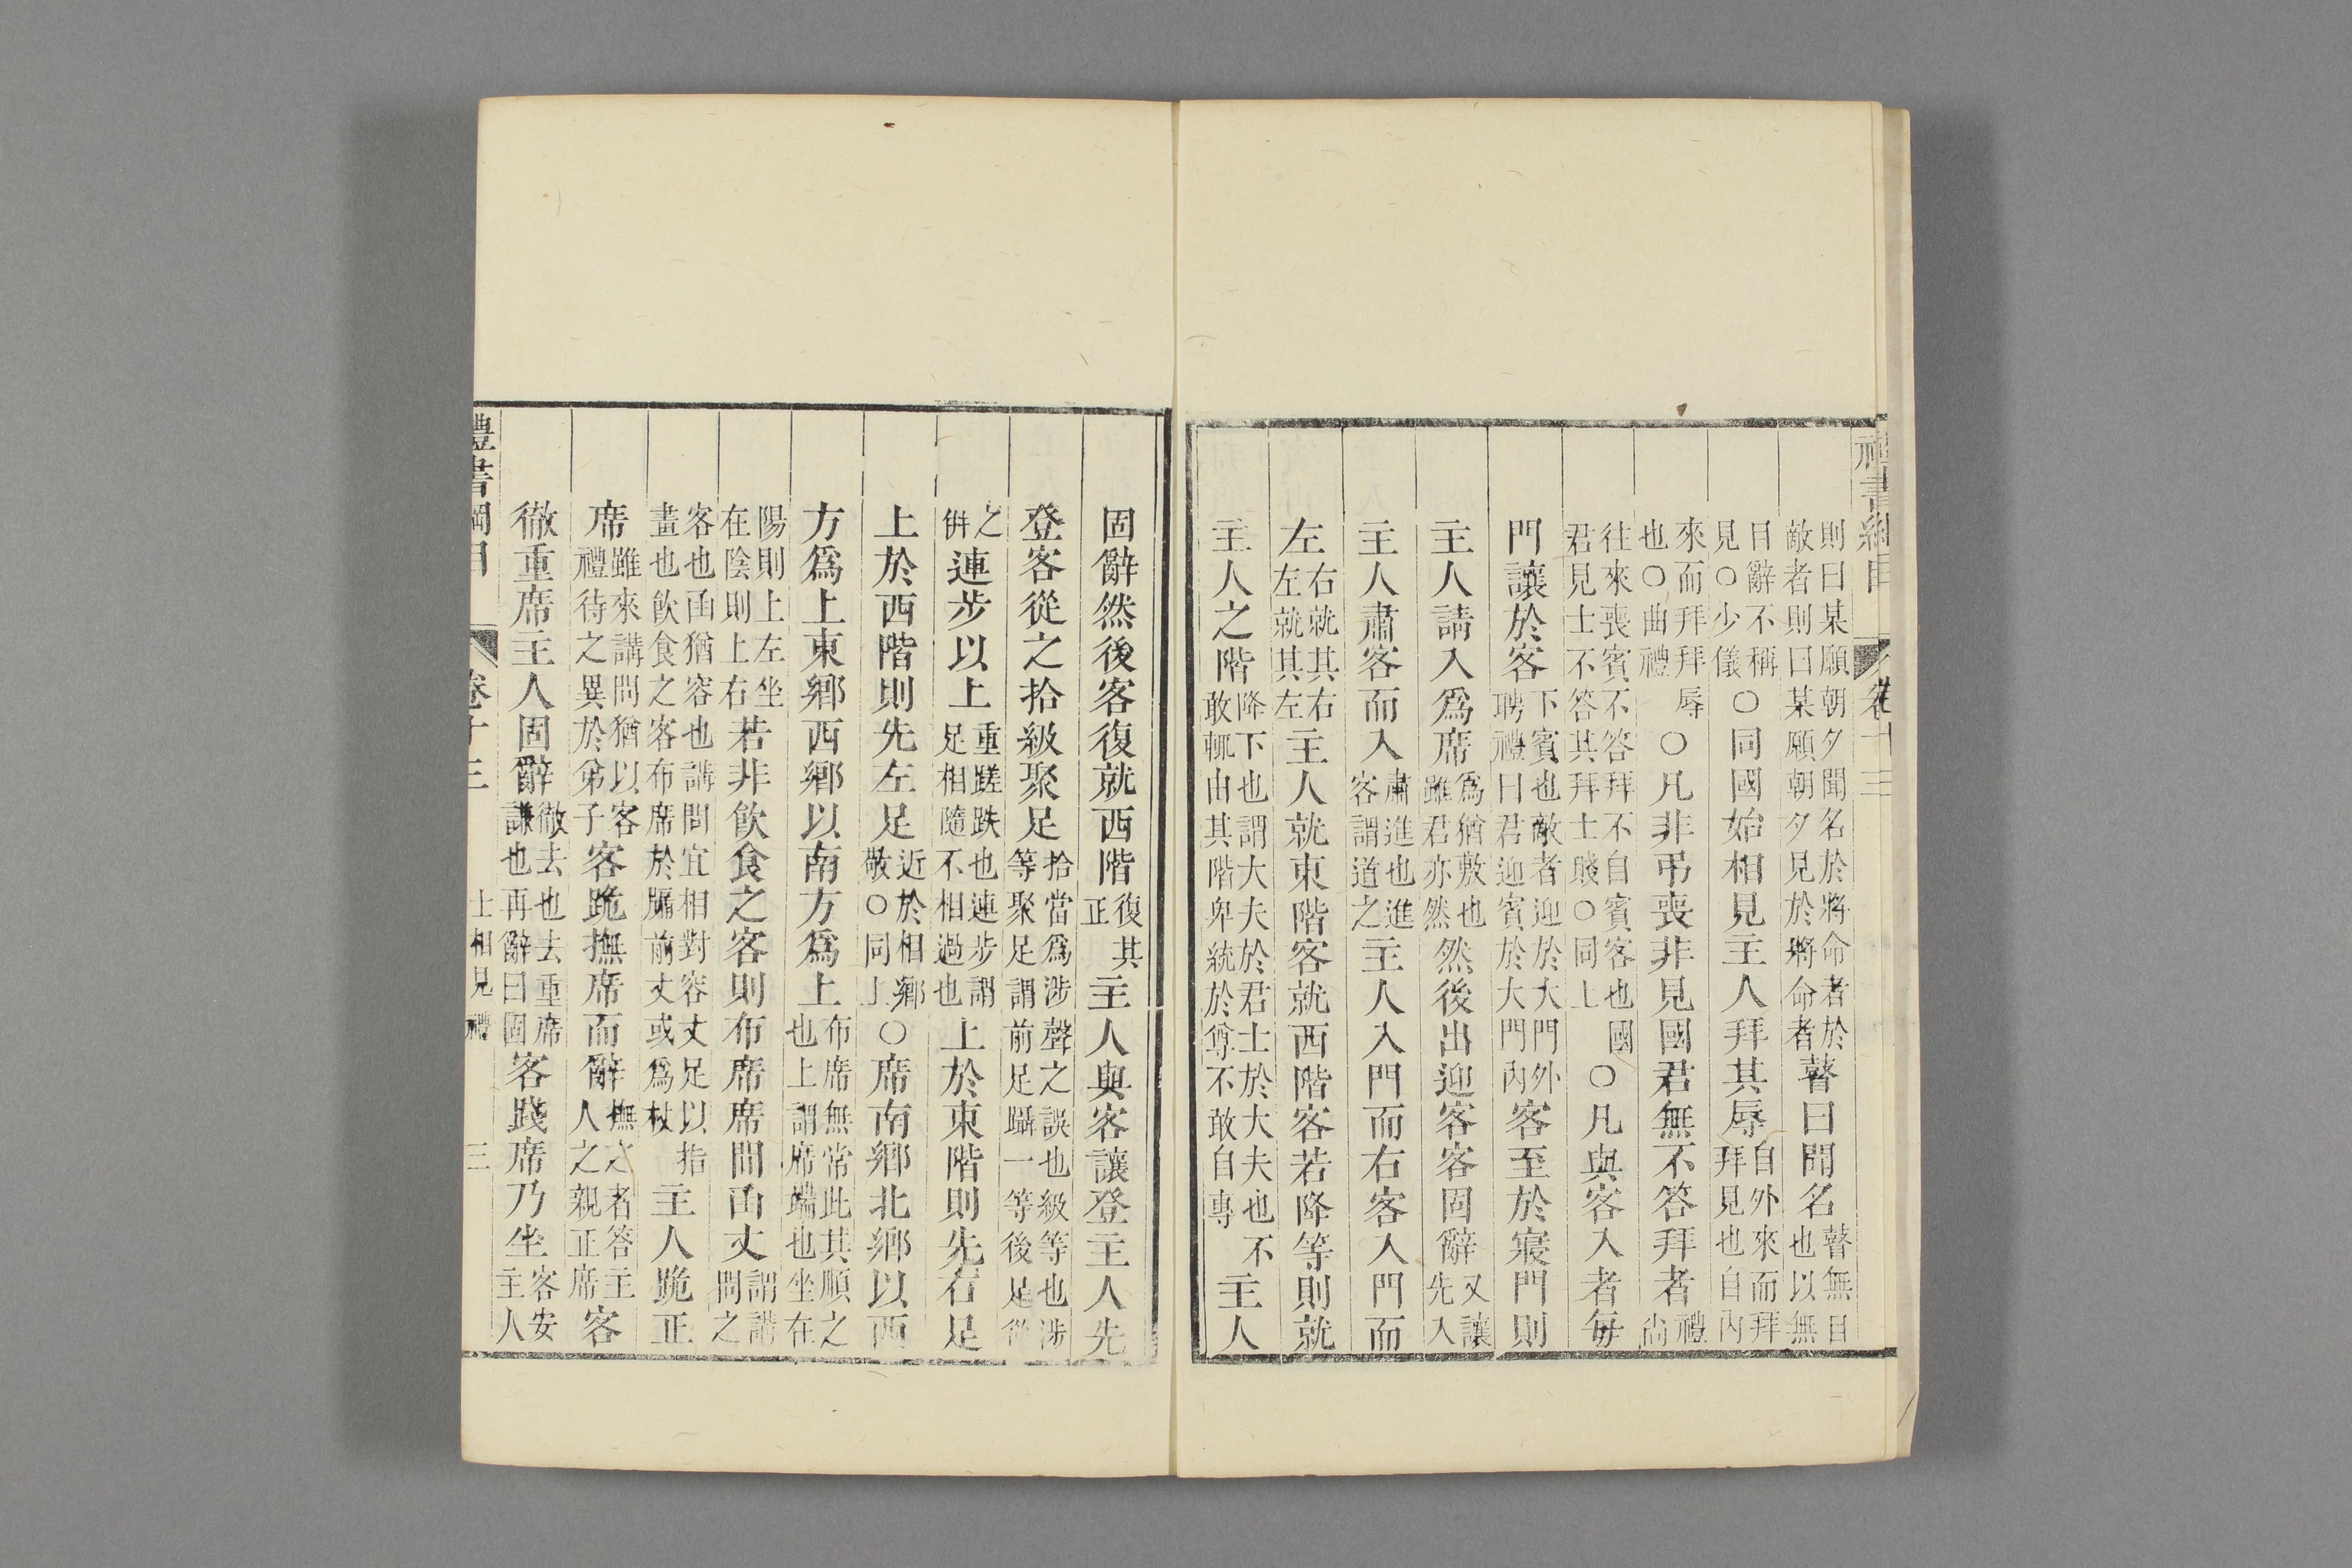 禮書綱目 卷十三
則曰某願朝夕聞名於將命者於敵者則曰某願朝夕見於將命者瞽曰聞名瞽無目也以無
目辭不稱見○少儀○同國始相見主人拜其辱自外來而拜拜見也自內
來而拜拜辱也○曲禮○凡非弔喪非見國君無不答拜者禮尚
往來喪賓不答拜不自賓客也國君見士不答其拜士賤○同上○凡與客入者每
門讓於客下賓也敵者迎於大門外聘禮曰君迎賓於大門內客至於寢門則
主人請入爲席爲猶敷也雖君亦然然後出迎客客固辭又讓先入
主人肅客而入肅進也進客謂道之主人入門而右客入門而
左右就其右左就其左主人就東階客就西階客若降等則就
主人之階降下也謂大夫於君士於大夫也不敢輒由其階卑統於尊不敢自專主人
固辭然後客復就西階復其正主人與客讓登主人先
登客從之拾級聚足拾當爲涉聲之誤也級等也涉等聚足謂前足躡一等後足從
之併連步以上重蹉跌也連步謂足相隨不相過也上於東階則先右足
上於西階則先左足近於相鄉敬○同上○席南鄉北鄉以西
方爲上東鄉西鄉以南方爲上布席無常此其順之也上謂席端也坐在
陽則上左坐在陰則上右若非飲食之客則布席席間函丈謂講問之
客也函猶容也講問宜相對容丈足以指畫也飲食之客布席於牖前丈或爲杖主人跪正
席雖來講問猶以客禮待之異於弟子客跪撫席而辭撫之者答主人之親正席客
徹重席主人固辭徹去也去重席謙也再辭曰固客踐席乃坐客安主人
禮書綱目 卷十三 士相見禮 三